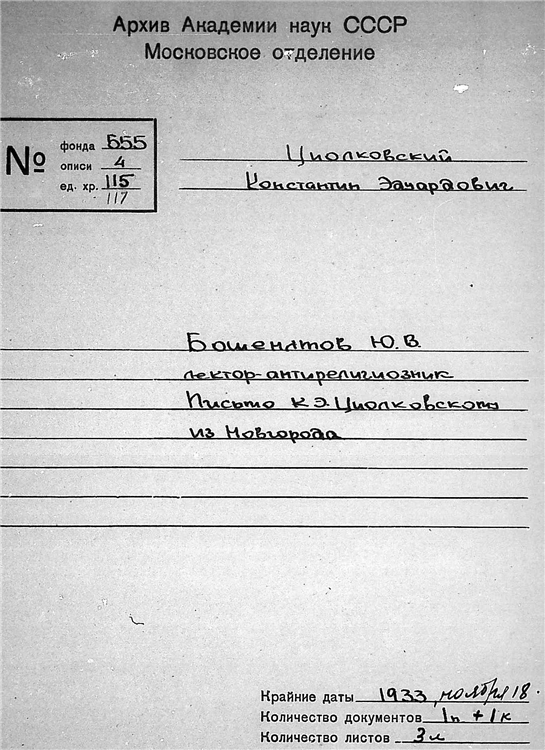 Архив Академии наук СССР
Московское отделение
№
фонда 555
описи 4
ед. хр. 115
117
Циолковский
Константин Эдуардович
Бошенятов Ю.В.
лектор-антирелигиозник
Письмо К.Э.Циолковского
из Новгорода
Крайние даты 1933, ноября 18.
Количество документов 1п + 1к
Количество листов 3л